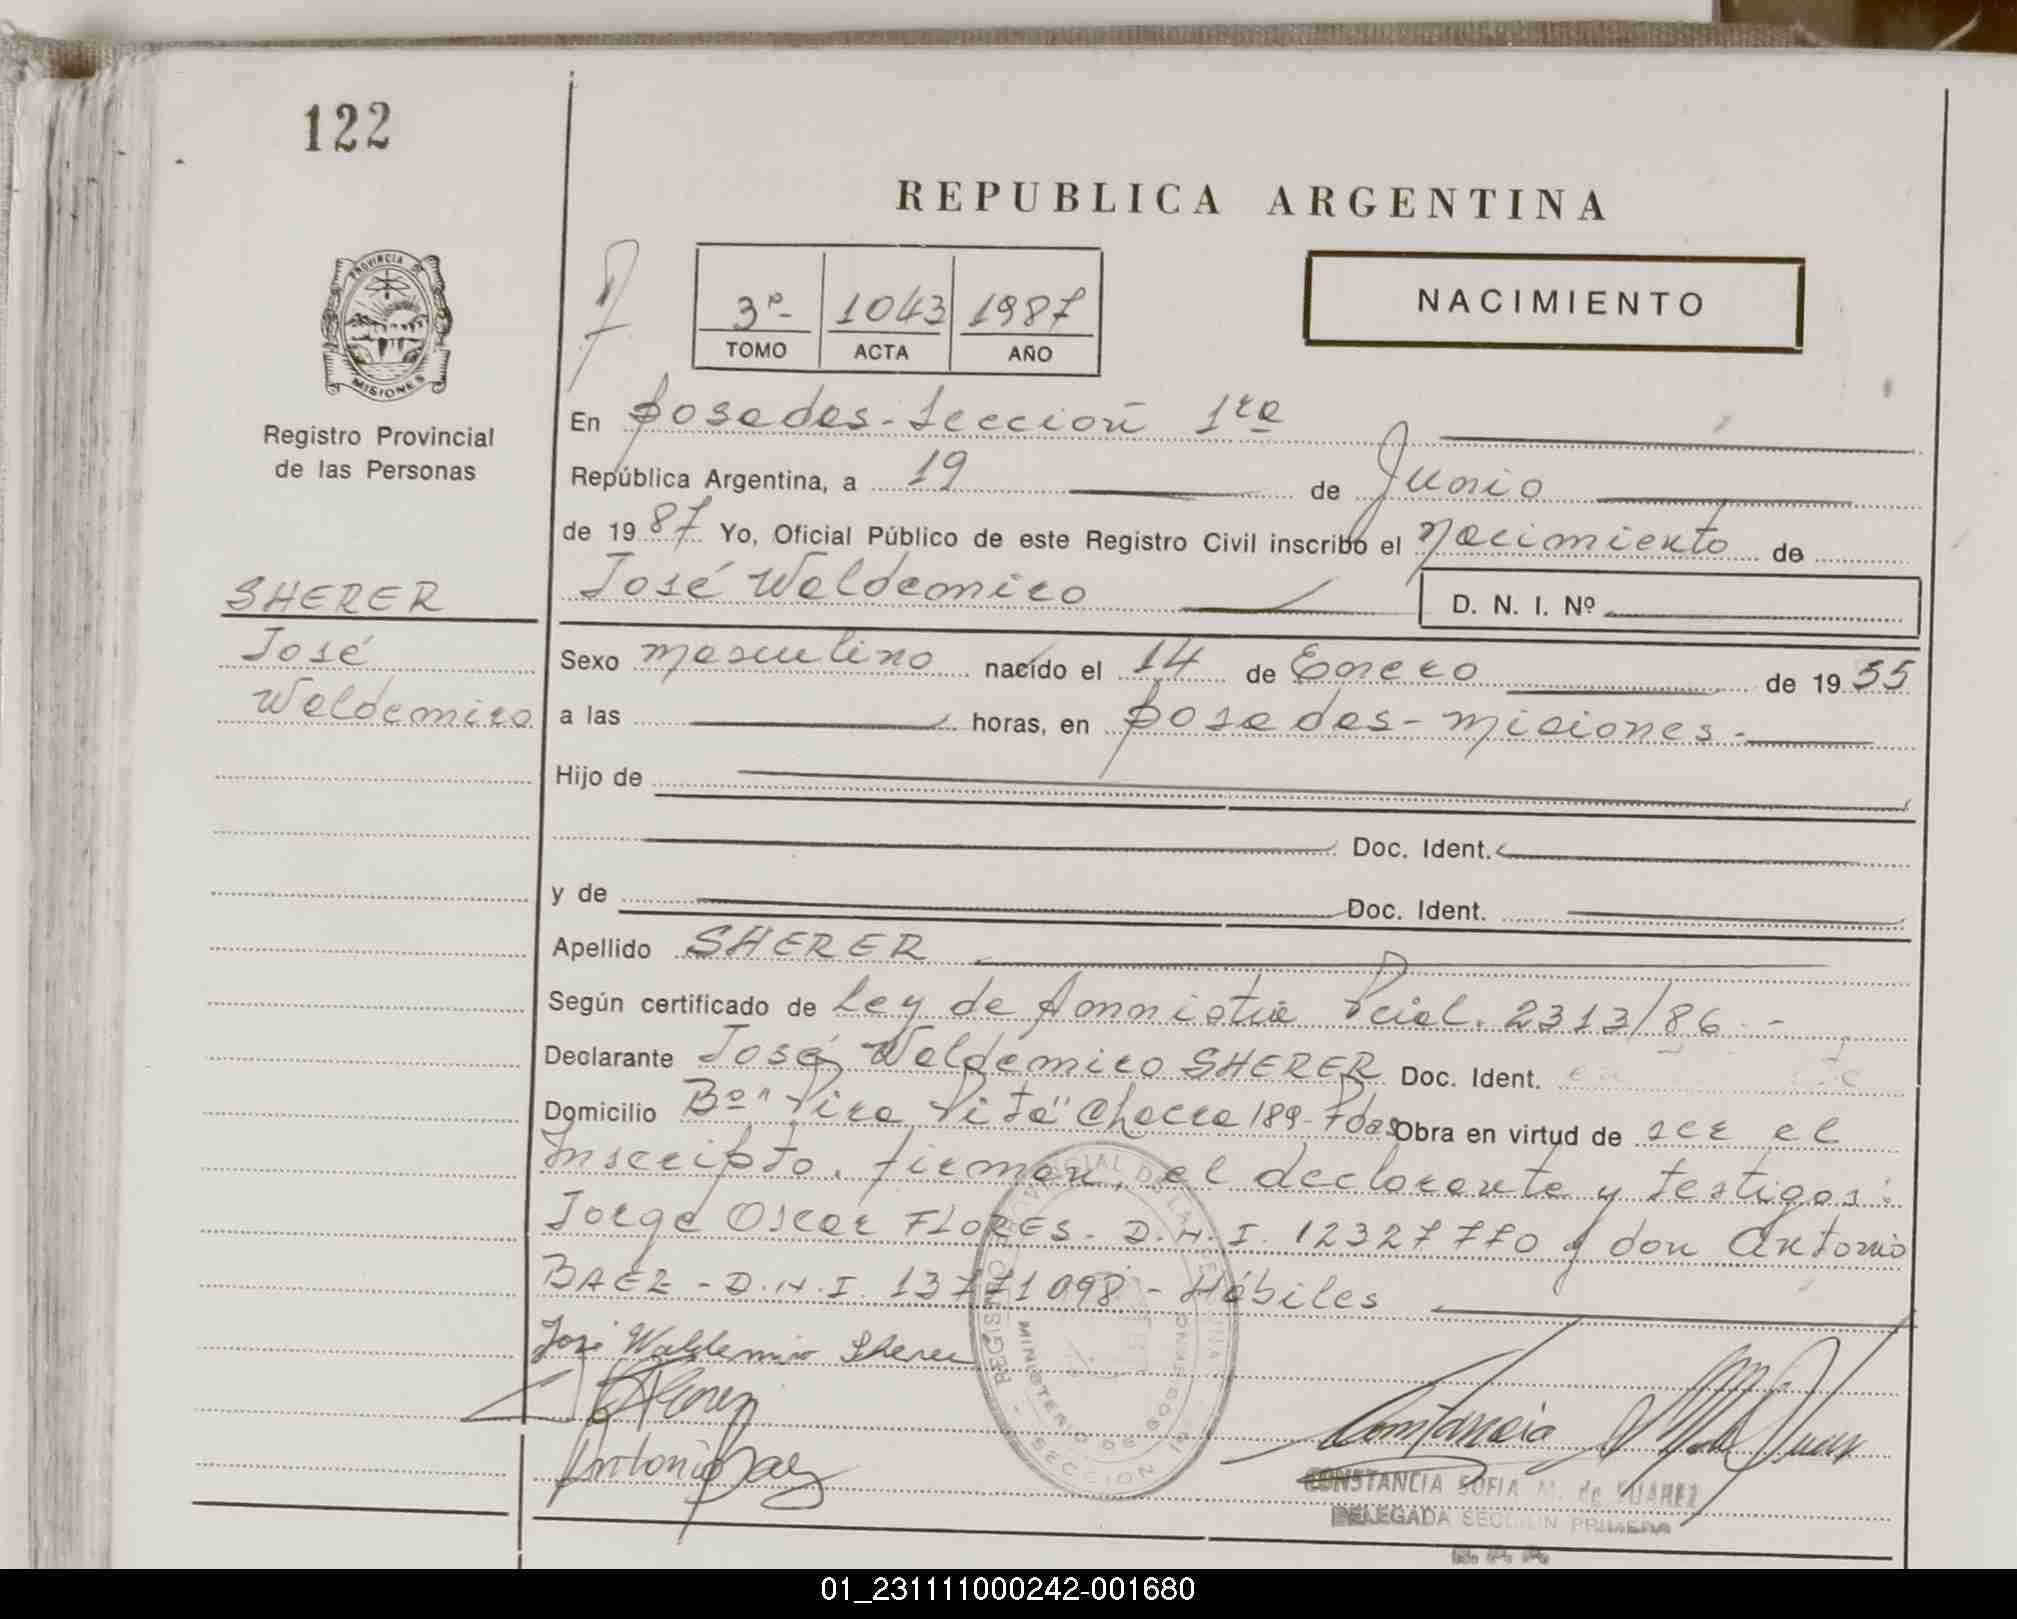 122
REPUBLICA ARGENTINA
PROVINCIA DE
MISIONES
Registro Provincial
de las Personas
3º- 1043 1987
TOMO ACTA AÑO
NACIMIENTO
En Posadas-Sección 1ra
República Argentina, a 19 de Junio
de 1987 Yo, Oficial Público de este Registro Civil inscribo el Nacimiento de
José Waldemiro D. N. I. Nº
SHERER
José
Waldemiro
Sexo masculino nacido el 14 de Enero de 1955
a las horas, en Posadas-Misiones-
Hijo de
Doc. Ident.
y de Doc. Ident.
Apellido SHERER
Según certificado de Ley de Amnistia Pcial. 2313/86.-
Declarante José Waldemiro SHERER Doc. Ident.
Domicilio Bº "Pira Pitá" Chacra 189-Pdas Obra en virtud de ser el
Inscripto. firman, el declarante y testigos:
Jorge Oscar FLORES. D.N.I. 12327770 y don Antonio
BAEZ - D.N.I. 13771098 - Hábiles
José Waldemiro Sherer
Flores
Antonio Baez
Constancia
MINISTERIO DE GOBIERNO
SECCION 1a
CONSTANCIA SOFIA M. de SUAREZ
DELEGADA SECCION PRIMERA
R. P. P.
01_231111000242-001680